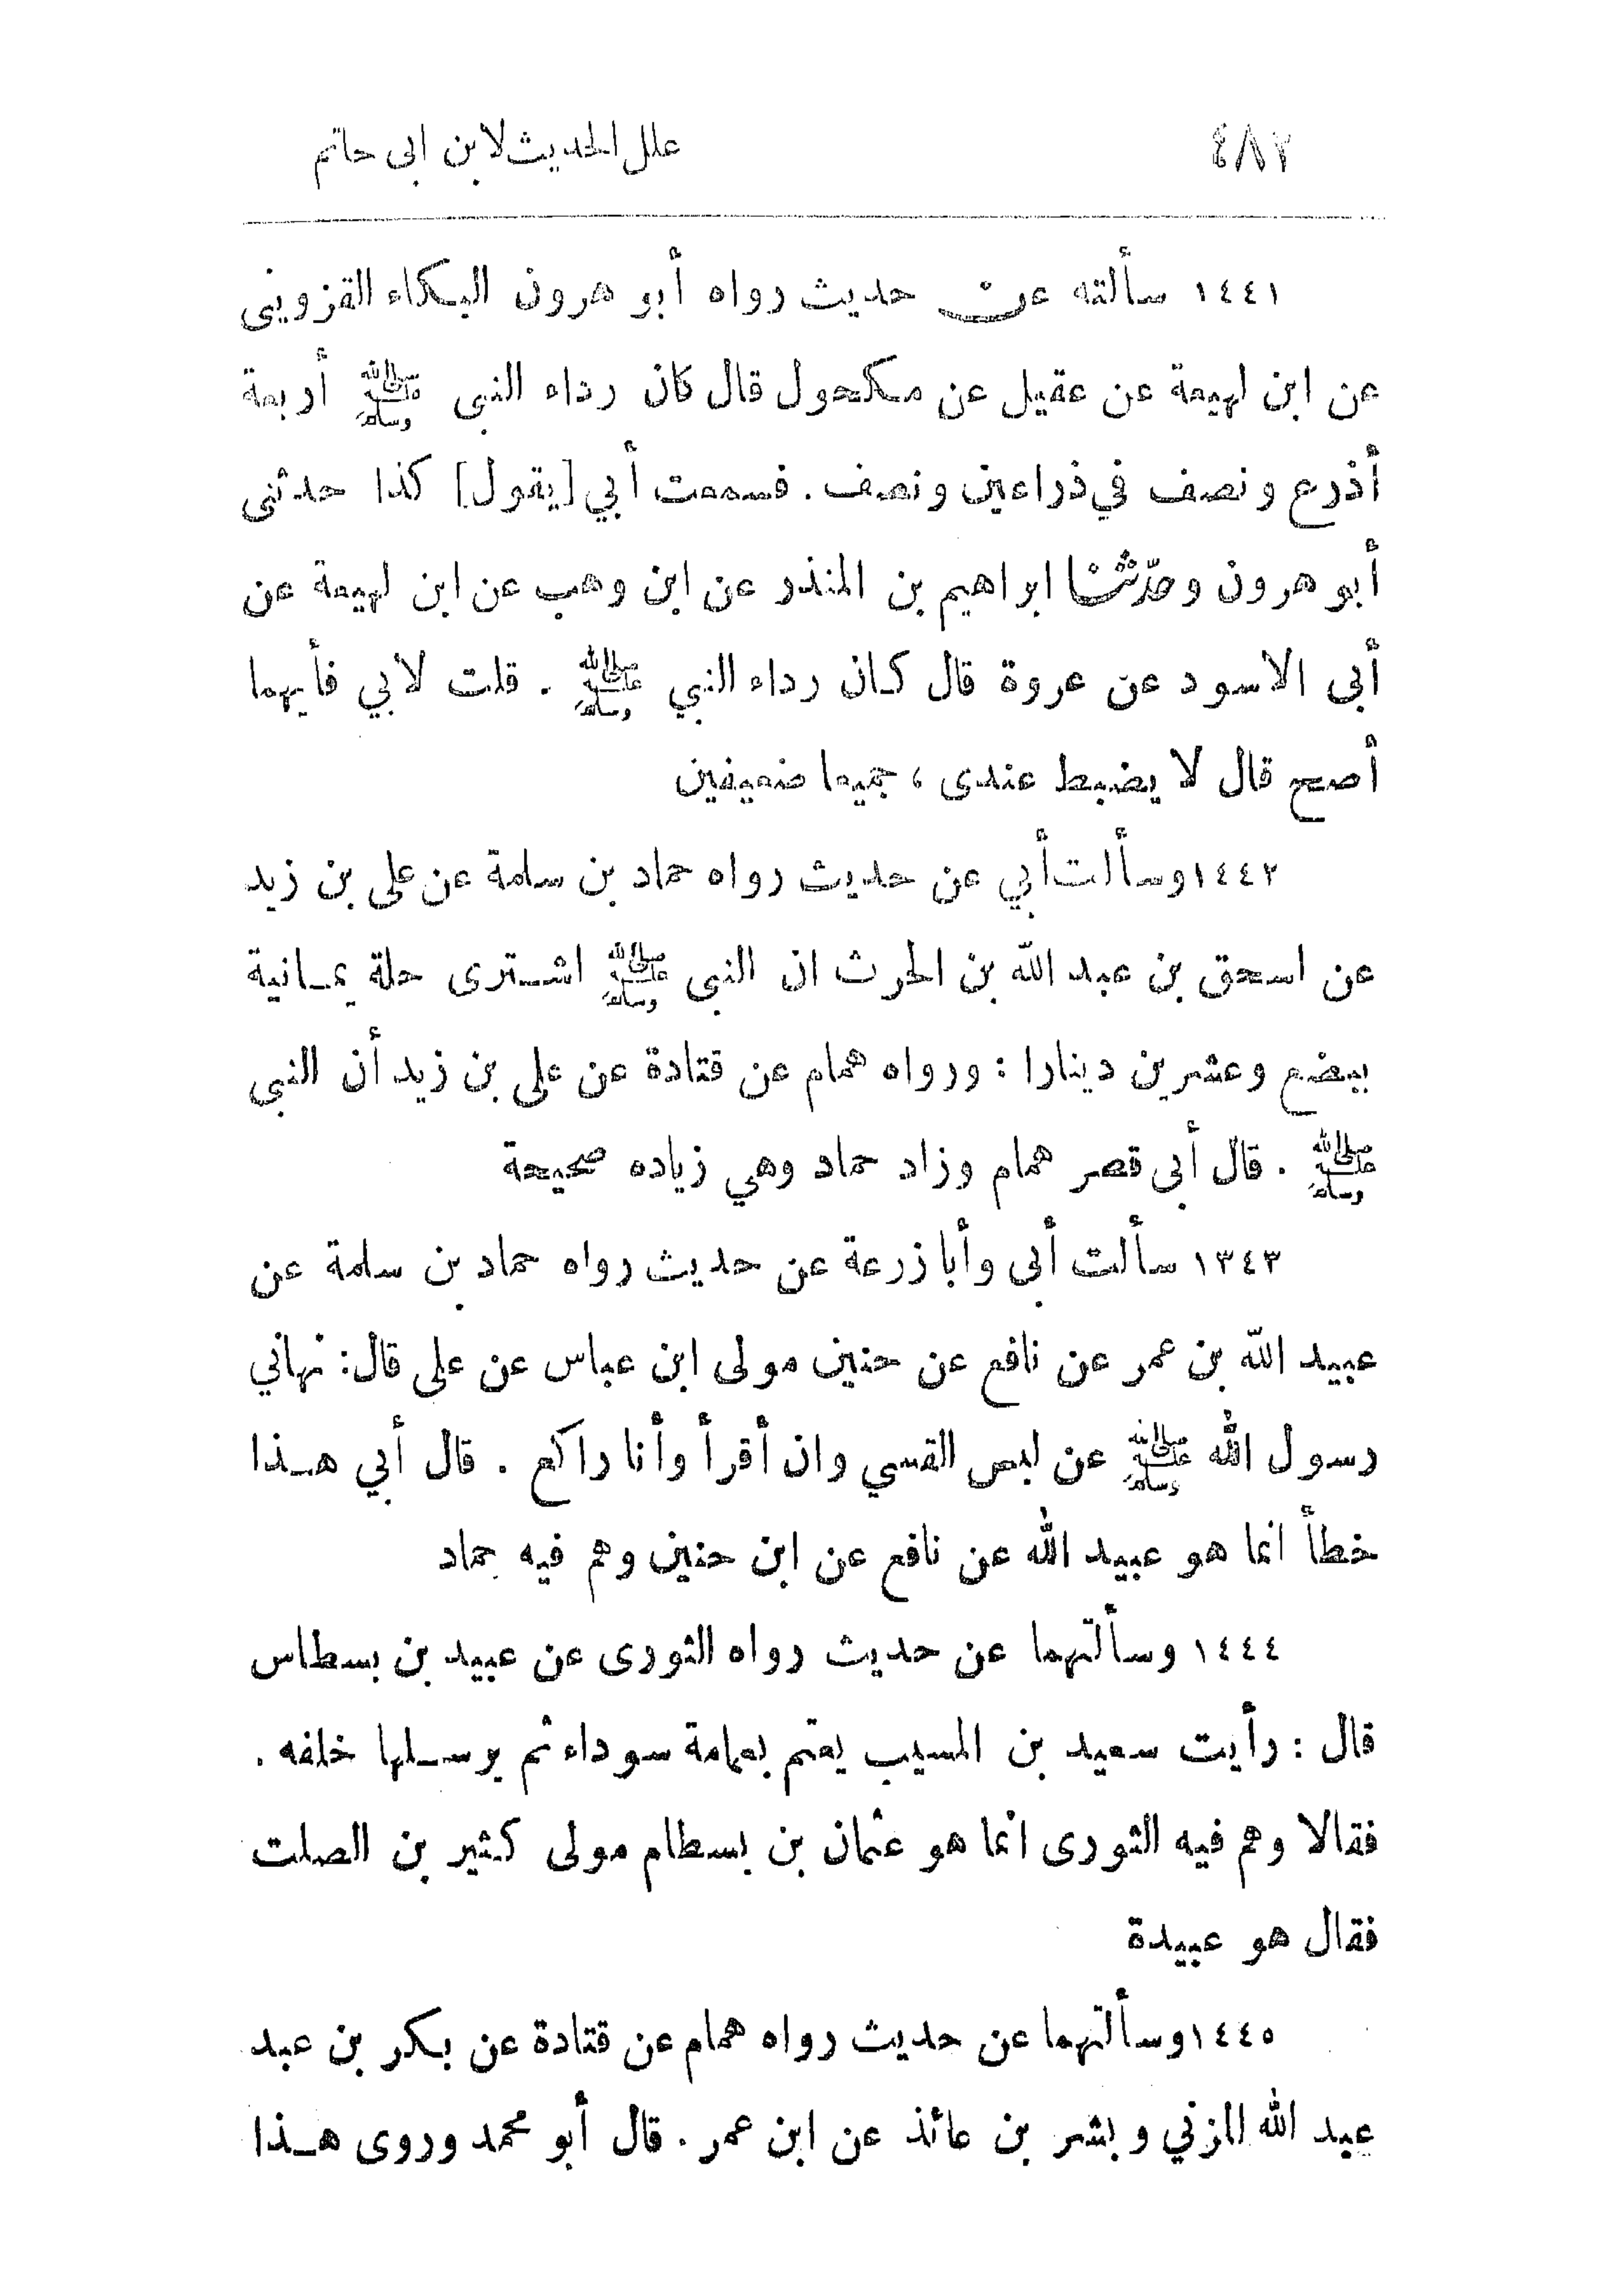 ٤٨٢ علل الحديث لابن ابى حاتم
١٤٤١ سألته عن حديث رواه أبو هرون البكاء القزوينى
عن ابن لهيعة عن عقيل عن مكحول قال كان رداء النبى ﷺ أربعة
أذرع ونصف في ذراعين ونصف . فسمعت أبي [يقول] كذا حدثنى
أبو هرون وحدّثنا ابراهيم بن المنذر عن ابن وهب عن ابن لهيعة عن
أبى الاسود عن عروة قال كان رداء النبي ﷺ . قلت لابي فأيهما
أصح قال لا يضبط عندى ، جميعا ضعيفين
١٤٤٢ وسألت أبي عن حديث رواه حماد بن سلمة عن على بن زيد
عن اسحق بن عبد الله بن الحرث ان النبى ﷺ اشترى حلة يمانية
ببضع وعشرين دينارا : ورواه همام عن قتادة عن على بن زيد أن النبى
ﷺ . قال أبى قصر همام وزاد حماد وهي زياده صحيحة
١٣٤٣ سألت أبى وأبا زرعة عن حديث رواه حماد بن سلمة عن
عبيد الله بن عمر عن نافع عن حنين مولى ابن عباس عن على قال: نهاني
رسول الله ﷺ عن لبس القسي وان أقرأ وأنا راكع . قال أبي هذا
خطأ انما هو عبيد الله عن نافع عن ابن حنين وهم فيه حماد
١٤٤٤ وسألتهما عن حديث رواه الثورى عن عبيد بن بسطاس
قال : رأيت سعيد بن المسيب يعتم بعمامة سوداء ثم يرسلها خلفه .
فقالا وهم فيه الثورى انما هو عثمان بن بسطام مولى كثير بن الصلت
فقال هو عبيدة
١٤٤٥ وسألتهما عن حديث رواه همام عن قتادة عن بكر بن عبد
عبد الله المزني وبشر بن عائذ عن ابن عمر . قال أبو محمد وروى هذا